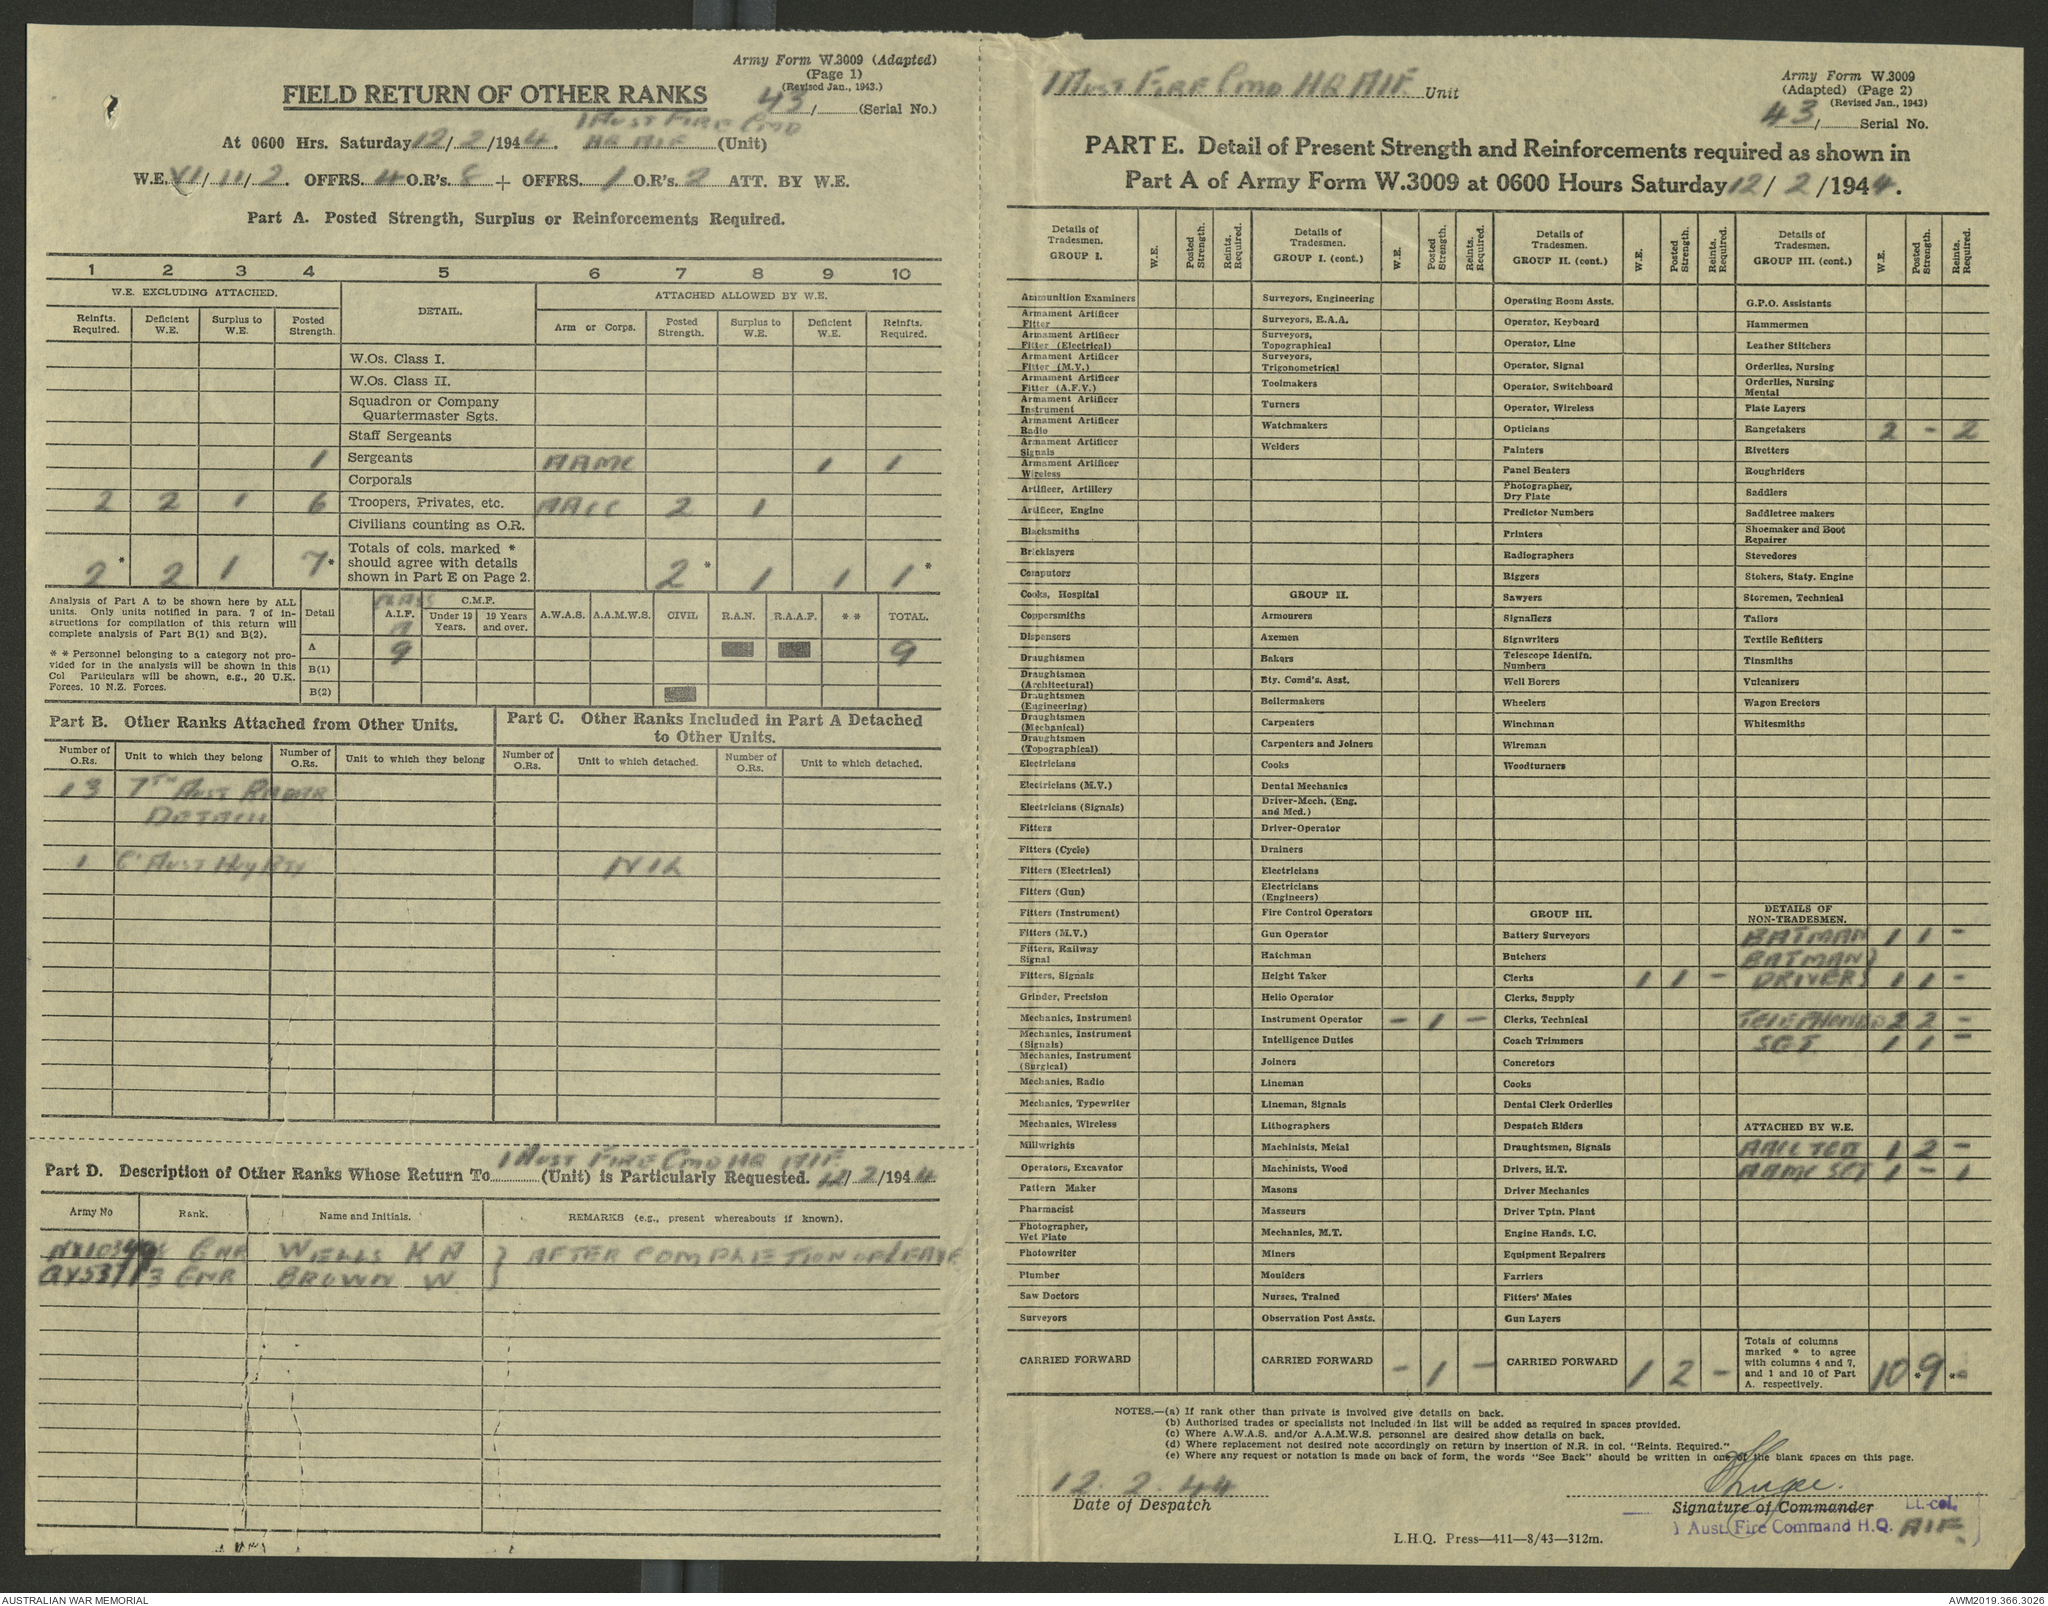 Army Form W.3009 (Adapted)
(Page 1)
(Revised Jan., 1943.)
FIELD RETURN OF OTHER RANKS
43/ (Serial No.)
1 AUST FIRE CMD
At 0600 Hrs. Saturday 12/2/1944. HQ AIF (Unit)
W.E. VI/11/2. OFFRS. 4 O.R's. 8 + OFFRS. 1 O.R's. 2 ATT. BY W.E.
Part A. Posted Strength, Surplus or Reinforcements Required.
1 2 3 4 5 6 7 8 9 10
W.E. EXCLUDING ATTACHED. DETAIL. ATTACHED ALLOWED BY W.E.
Reinfts. Required. Deficient W.E. Surplus to W.E. Posted Strength. Arm or Corps. Posted Strength. Surplus to W.E. Deficient W.E. Reinfts. Required.
W.Os. Class I.
W.Os. Class II.
Squadron or Company
Quartermaster Sgts.
Staff Sergeants
1 Sergeants AAMC 1 1
Corporals
2 2 1 6 Troopers, Privates, etc. AACC 2 1
Civilians counting as O.R.
2* 2 1 7* Totals of cols. marked * should agree with details shown in Part E on Page 2. 2* 1 1 1*
Analysis of Part A to be shown here by ALL
units. Only units notified in para. 7 of in-
structions for compilation of this return will
complete analysis of Part B(1) and B(2).
* * Personnel belonging to a category not pro-
vided for in the analysis will be shown in this
Col Particulars will be shown, e.g., 20 U.K.
Forces. 10 N.Z. Forces.
CLASS
C.M.F.
Detail A.I.F. Under 19 Years. 19 Years and over. A.W.A.S. A.A.M.W.S. CIVIL R.A.N. R.A.A.F. * * TOTAL.
A
A 9 9
B(1)
B(2)
Part B. Other Ranks Attached from Other Units.
Number of O.Rs. Unit to which they belong Number of O.Rs. Unit to which they belong
13 7TH AUST RADAR
DETACH
1 C' AUST HVY BTY
Part C. Other Ranks Included in Part A Detached
to Other Units.
Number of O.Rs. Unit to which detached. Number of O.Rs. Unit to which detached.
NIL
1 AUST FIRE CMD HQ AIF.
Part D. Description of Other Ranks Whose Return To (Unit) is Particularly Requested. 12/2/1944
Army No Rank. Name and Initials. REMARKS (e.g., present whereabouts if known).
GNR WELLS K A } AFTER COMPLETION OF LEAVE
GNR BROWN W }
1 AUST FIRE CMD HQ AIF. Unit
Army Form W.3009
(Adapted) (Page 2)
(Revised Jan., 1943)
43/ Serial No.
PART E. Detail of Present Strength and Reinforcements required as shown in
Part A of Army Form W.3009 at 0600 Hours Saturday 12/2/1944.
Details of Tradesmen. GROUP I. W.E. Posted Strength. Reints. Required.
Ammunition Examiners
Armament Artificer Fitter
Armament Artificer Fitter (Electrical)
Armament Artificer Fitter (M.V.)
Armament Artificer Fitter (A.F.V.)
Armament Artificer Instrument
Armament Artificer Radio
Armament Artificer Signals
Armament Artificer Wireless
Artificer, Artillery
Artificer, Engine
Blacksmiths
Bricklayers
Computors
Cooks, Hospital
Coppersmiths
Dispensers
Draughtsmen
Draughtsmen (Architectural)
Draughtsmen (Engineering)
Draughtsmen (Mechanical)
Draughtsmen (Topographical)
Electricians
Electricians (M.V.)
Electricians (Signals)
Fitters
Fitters (Cycle)
Fitters (Electrical)
Fitters (Gun)
Fitters (Instrument)
Fitters (M.V.)
Fitters, Railway Signal
Fitters, Signals
Grinder, Precision
Mechanics, Instrument
Mechanics, Instrument (Signals)
Mechanics, Instrument (Surgical)
Mechanics, Radio
Mechanics, Typewriter
Mechanics, Wireless
Millwrights
Operators, Excavator
Pattern Maker
Pharmacist
Photographer, Wet Plate
Photowriter
Plumber
Saw Doctors
Surveyors
CARRIED FORWARD
Details of Tradesmen. GROUP I. (cont.) W.E. Posted Strength. Reints. Required.
Surveyors, Engineering
Surveyors, R.A.A.
Surveyors, Topographical
Surveyors, Trigonometrical
Toolmakers
Turners
Watchmakers
Welders
GROUP II.
Armourers
Axemen
Bakers
Bty. Comd's. Asst.
Boilermakers
Carpenters
Carpenters and Joiners
Cooks
Dental Mechanics
Driver-Mech. (Eng. and Mcd.)
Driver-Operator
Drainers
Electricians
Electricians (Engineers)
Fire Control Operators
Gun Operator
Hatchman
Height Taker
Helio Operator
Instrument Operator - 1 -
Intelligence Duties
Joiners
Lineman
Lineman, Signals
Lithographers
Machinists, Metal
Machinists, Wood
Masons
Masseurs
Mechanics, M.T.
Miners
Moulders
Nurses, Trained
Observation Post Assts.
CARRIED FORWARD - 1 -
Details of Tradesmen. GROUP II. (cont.) W.E. Posted Strength. Reints. Required.
Operating Room Assts.
Operator, Keyboard
Operator, Line
Operator, Signal
Operator, Switchboard
Operator, Wireless
Opticians
Painters
Panel Beaters
Photographer, Dry Plate
Predictor Numbers
Printers
Radiographers
Riggers
Sawyers
Signallers
Signwriters
Telescope Identfn. Numbers
Well Borers
Wheelers
Winchman
Wireman
Woodturners
GROUP III.
Battery Surveyors
Butchers
Clerks 1 1 -
Clerks, Supply
Clerks, Technical
Coach Trimmers
Concretors
Cooks
Dental Clerk Orderlies
Despatch Riders
Draughtsmen, Signals
Drivers, H.T.
Driver Mechanics
Driver Tptn. Plant
Engine Hands. I.C.
Equipment Repairers
Farriers
Fitters' Mates
Gun Layers
CARRIED FORWARD 1 2 -
Details of Tradesmen. GROUP III. (cont.) W.E. Posted Strength. Reints. Required.
G.P.O. Assistants
Hammermen
Leather Stitchers
Orderlies, Nursing
Orderlies, Nursing Mental
Plate Layers
Rangetakers 2 - 2
Rivetters
Roughriders
Saddlers
Saddletree makers
Shoemaker and Boot Repairer
Stevedores
Stokers, Staty. Engine
Storemen, Technical
Tailors
Textile Refitters
Tinsmiths
Vulcanizers
Wagon Erectors
Whitesmiths
DETAILS OF NON-TRADESMEN.
BATMAN 1 1 -
BATMAN }
DRIVER } 1 1 -
2 2 -
SGT 1 1 -
ATTACHED BY W.E.
AACC 1 2 -
AAMC SGT 1 - 1
Totals of columns marked * to agree with columns 4 and 7, and 1 and 10 of Part A. respectively. 10 *9 *
NOTES.—(a) If rank other than private is involved give details on back.
(b) Authorised trades or specialists not included in list will be added as required in spaces provided.
(c) Where A.W.A.S. and/or A.A.M.W.S. personnel are desired show details on back.
(d) Where replacement not desired note accordingly on return by insertion of N.R. in col. "Reints. Required."
(e) Where any request or notation is made on back of form, the words "See Back" should be written in one of the blank spaces on this page.
12.2.44
Date of Despatch
Signature of Commander Lt.-col.
1 Aust. Fire Command H.Q. AIF
L.H.Q. Press—411—8/43—312m.
AUSTRALIAN WAR MEMORIAL
AWM2019.366.3026